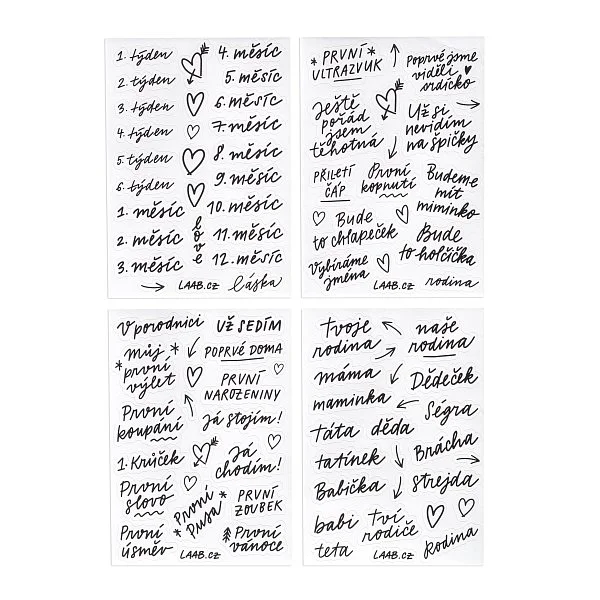 1. týden
2. týden
3. týden
4. týden
5. týden
6. týden
1. měsíc
2. měsíc
3. měsíc
4. měsíc
5. měsíc
6. měsíc
7. měsíc
8. měsíc
9. měsíc
10. měsíc
11. měsíc
12. měsíc
love
LAAB.CZ
láska
* PRVNÍ *
ULTRAZVUK
Poprvé jsme
viděli
srdíčko
Ještě
pořád
jsem
těhotná
Už si
nevidím
na špičky
PŘILETÍ
ČÁP
První
kopnutí
Budeme
mít
miminko
Bude
to chlapeček
Bude
to holčička
Vybíráme
jména
LAAB.CZ
rodina
V porodnici
UŽ SEDÍM
můj
* první *
výlet
POPRVÉ DOMA
PRVNÍ
NAROZENINY
První
koupání
Já stojím!
1. Krůček
Já
chodím!
První
slovo
* První *
Pusa
PRVNÍ
ZOUBEK
První
úsměv
První
vánoce
LAAB.CZ
tvoje
rodina
naše
rodina
máma
Dědeček
maminka
Ségra
táta
děda
tatínek
Brácha
Babička
strejda
babi
tví
rodiče
teta
LAAB.CZ
rodina